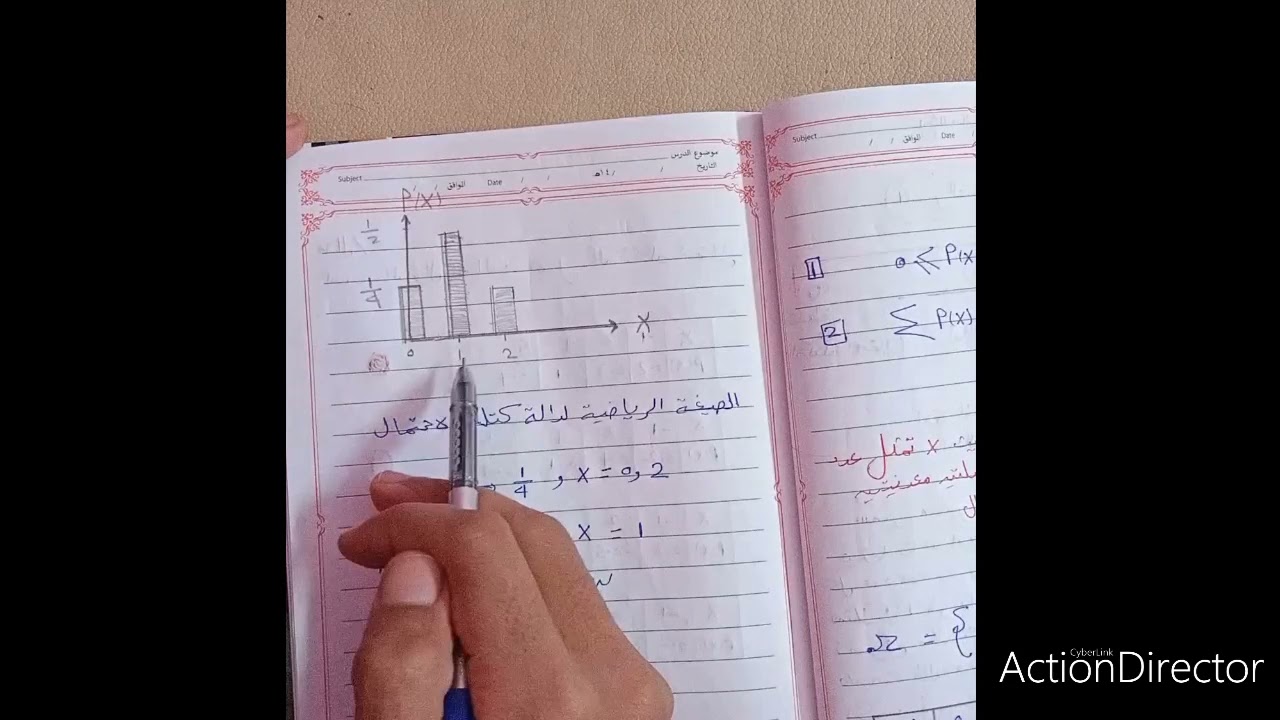 موضوع الدرس
التاريخ / / ١٤هـ
الموافق / / Date
Subject
P(X)
1/2
1/4
0 1 2 X
الصيغة الرياضية لدالة كتلة الاحتمال
1/4 , X = 0, 2
X = 1
Subject
الموافق / / Date
1 0 ≤ P(X
2 Σ P(X)
X تمثل عدد
Ω = {
CyberLink
ActionDirector